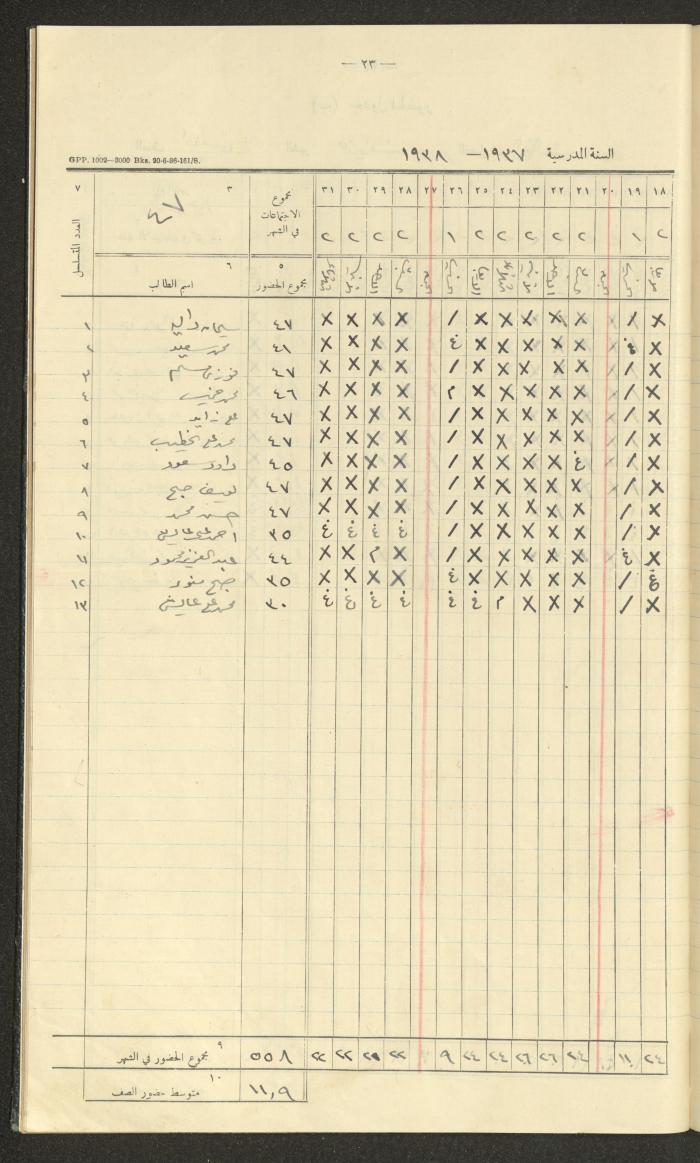 — ٢٣ —
السنة المدرسية ١٩٣٧ — ١٩٣٨
GPP. 1002—3000 Bks. 20-6-36-161/S.
١٨ ١٩ ٢٠ ٢١ ٢٢ ٢٣ ٢٤ ٢٥ ٢٦ ٢٧ ٢٨ ٢٩ ٣٠ ٣١ مجموع الاجتماعات في الشهر ٣ ٤٧ ٧ العدد المتسلسل
٢ ١ ٢ ٢ ٢ ٢ ٢ ١ ٢ ٢ ٢ ٢
٥ مجموع الحضور ٦ اسم الطالب
X / X X X X X / X X X X ٤٧ ١
X غ X X X X X غ X X X X ٤١ محمد سعيد ٢
X / X X X X X / X X X X ٤٧ ٣
X / X X X X X م X X X X ٤٦ ٤
X / X X X X X / X X X X ٤٧ علي زايد ٥
X / X X X X X / X X X X ٤٧ محمد علي الخطيب ٦
X / غ X X X X / X X X X ٤٥ داود سعود ٧
X / X X X X X / X X X X ٤٧ صبح ٨
X / X X X X X / X X X X ٤٧ حسن محمد ٩
X / X X X X X / غ غ غ غ ٣٥ احمد علي ١٠
X غ X X X X X / X م X X ٤٤ عبد العزيز محمود ١١
غ / X X X X X غ X X X X ٣٥ صبح ١٢
X / X X X م غ غ غ غ غ غ ٣٠ محمد علي عايش ١٣
٢٤ ١١ ٢٤ ٢٦ ٢٦ ٢٤ ٢٤ ٩ ٢٢ ٢١ ٢٢ ٢٢ ٥٥٨ ٩ مجموع الحضور في الشهر
١١,٩ ١٠ متوسط حضور الصف